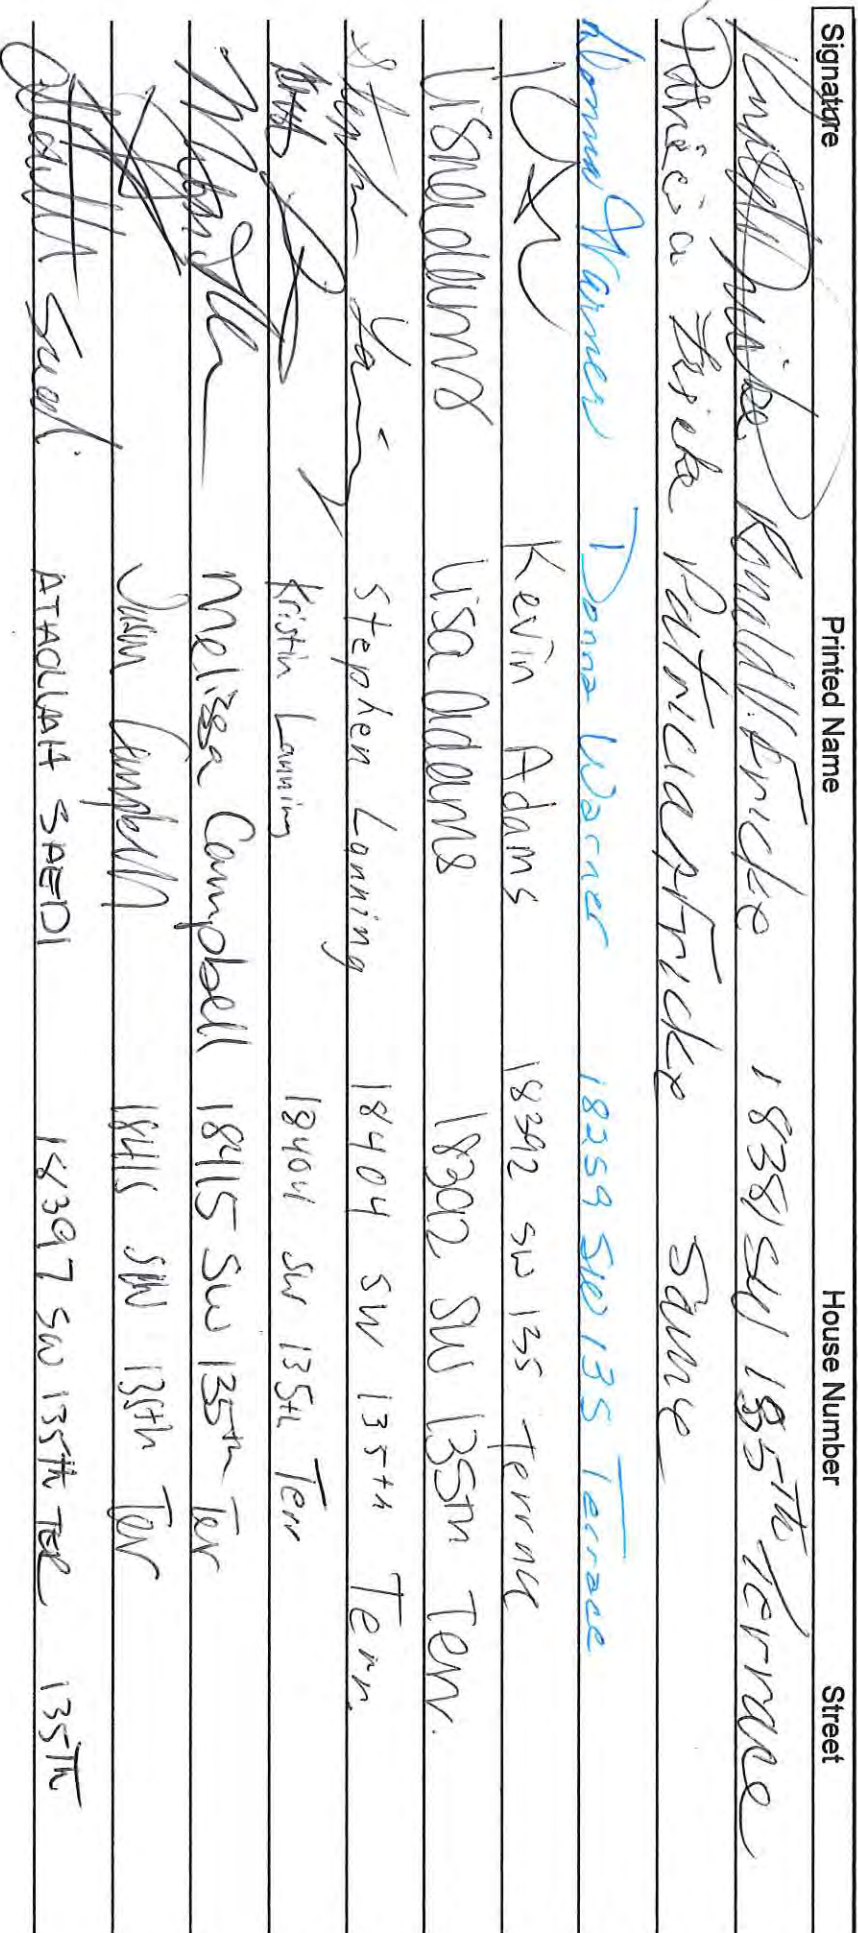 Signature Printed Name House Number Street
Ronald V. Fricke 18381 SW 135th Terrace
Patricia Fricke Patricia A Fricke Same
Donna Warner Donna Warner 18259 SW 135 Terrace
Kevin Adams 18392 SW 135 Terrace
Lisa Adams Lisa Adams 18392 SW 135th Terr.
Stephen Lanning 18404 SW 135th Terr.
Kristin Lanning 18404 SW 135th Terr
Melissa Campbell 18415 SW 135th Ter
Campbell 18415 SW 135th Ter
ATAOLLAH SAEDI 18397 SW 135th TER 135Th